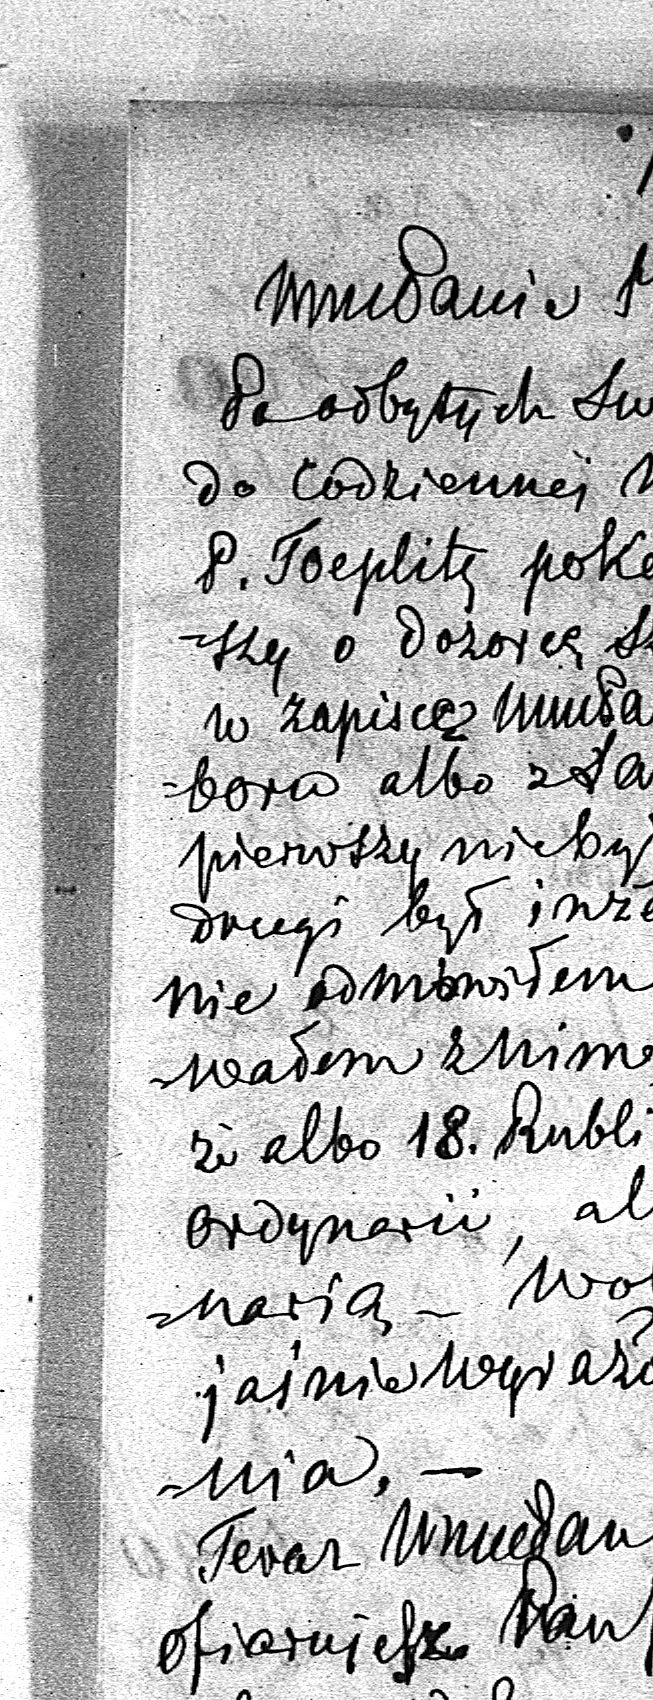 Po odbytych Sw
do codziennej
P. Toeplitz poka
-szy o dozorcą
w zapisce
-bora albo z Ła
pierwszy nieby
drugi był inże
nie odmówiłem
-wałem z nim
że albo 18. Rubli
ordynarii, al
-narią – wol
jaśnie wyrażo
-nia, —
Teraz
ofiarujesz Pan